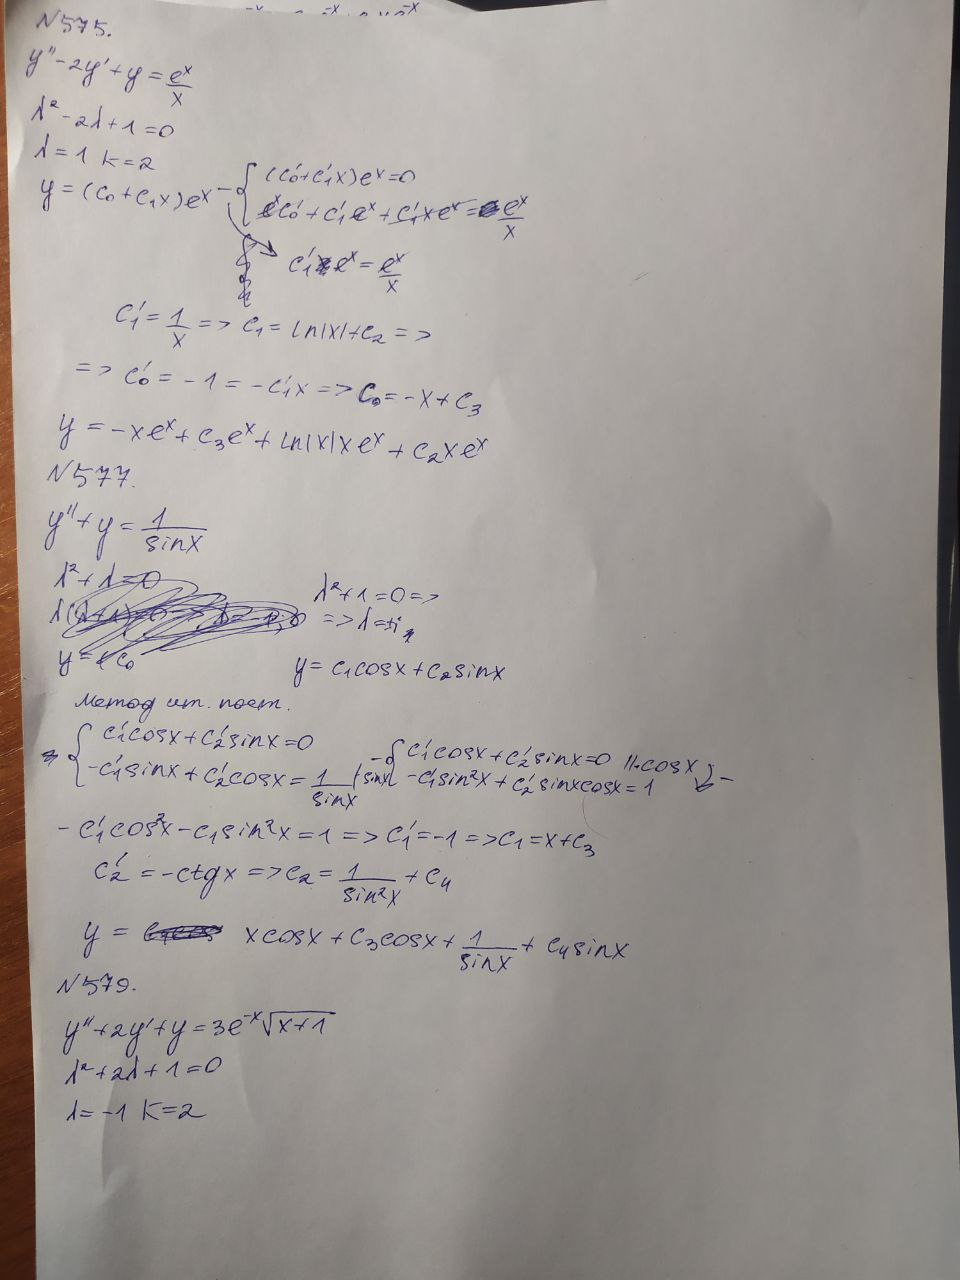 N575.
y'' - 2y' + y = e^x/x
λ² - 2λ + 1 = 0
λ = 1 k = 2
y = (C₀ + C₁x)e^x - { (C₀' + C₁'x)e^x = 0
e^xC₀' + C₁'e^x + C₁'xe^x = e^x/x
C₁'e^x = e^x/x
C₁' = 1/x => C₁ = ln|x| + C₂ =>
=> C₀' = -1 = -C₁'x => C₀ = -x + C₃
y = -xe^x + C₃e^x + ln|x|xe^x + C₂xe^x
N577.
y'' + y = 1/sinx
λ² + λ = 0
λ² + 1 = 0 =>
=> λ = ±i
y = C₀
y = C₁cosx + C₂sinx
Метод ит. пост.
{ C₁'cosx + C₂'sinx = 0
-C₁'sinx + C₂'cosx = 1/sinx |·sinx
- { C₁'cosx + C₂'sinx = 0 ||·cosx
-C₁'sin²x + C₂'sinxcosx = 1
-C₁'cos²x - C₁sin²x = 1 => C₁' = -1 => C₁ = x + C₃
C₂' = -ctgx => C₂ = 1/sin²x + C₄
y = xcosx + C₃cosx + 1/sinx + C₄sinx
N579.
y'' + 2y' + y = 3e^-x√x+1
λ² + 2λ + 1 = 0
λ = -1 k = 2